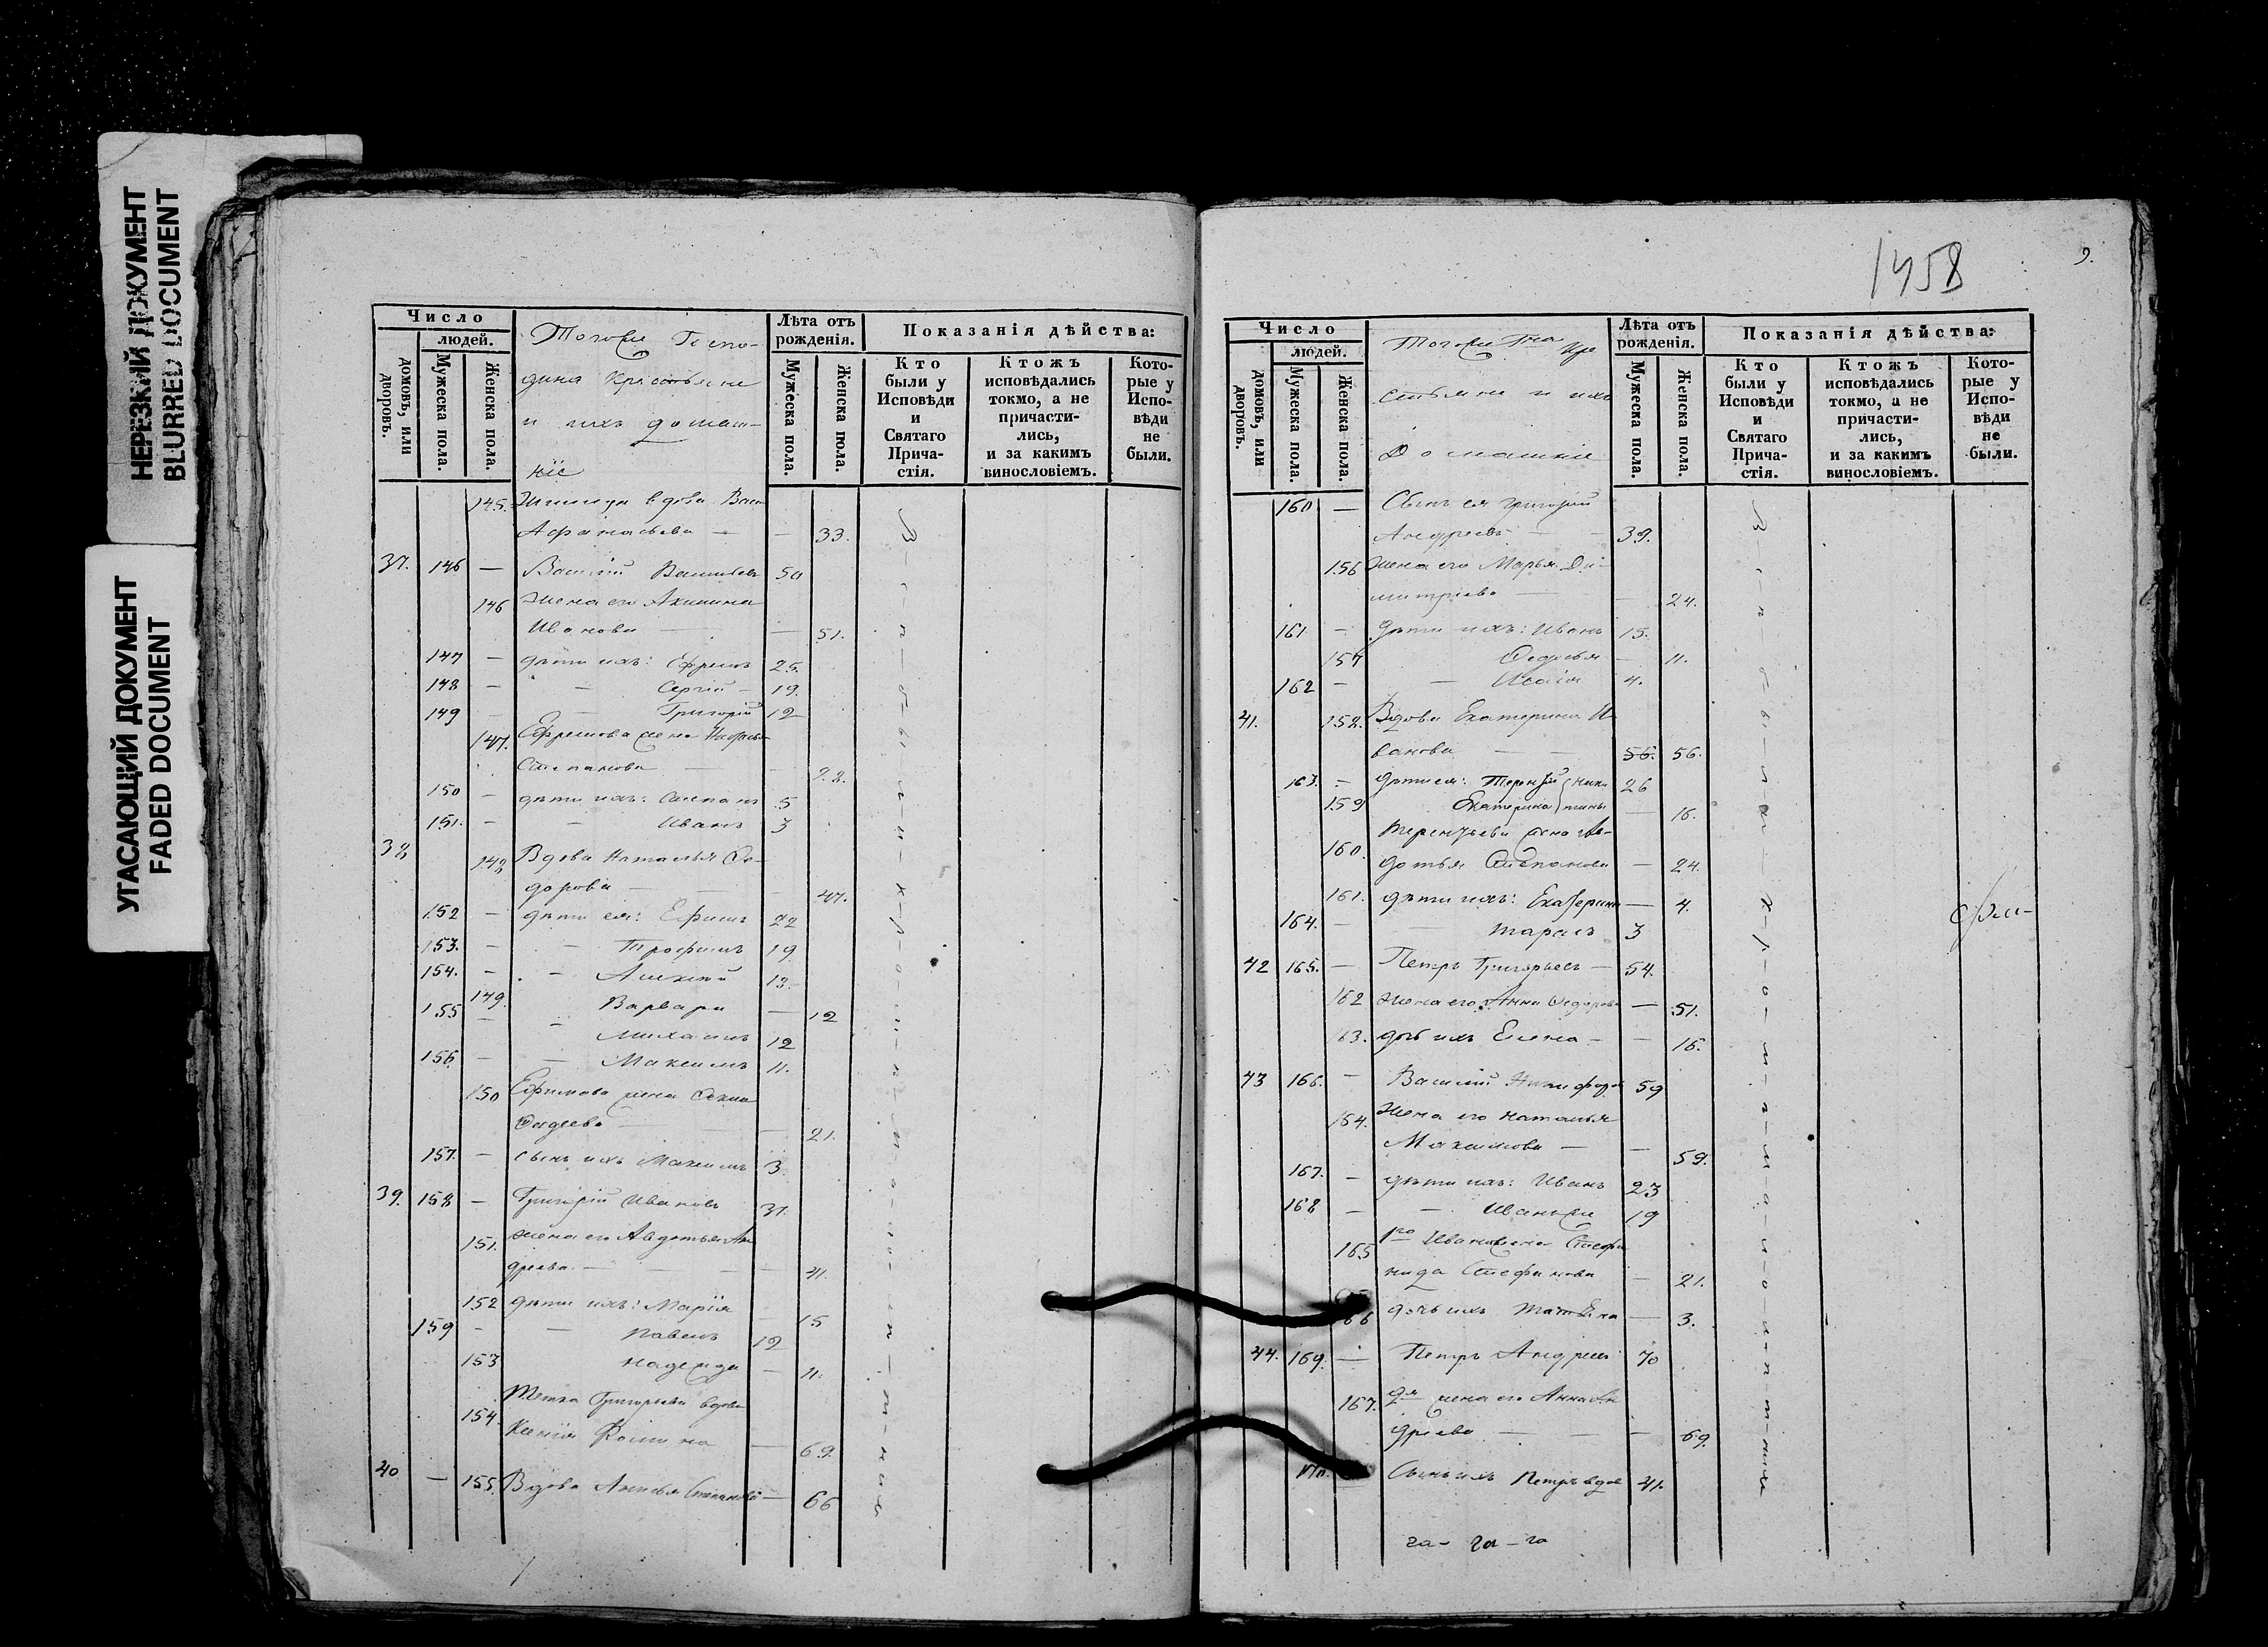 НЕРЕЗКИЙ ДОКУМЕНТ
BLURRED DOCUMENT
УГАСАЮЩИЙ ДОКУМЕНТ
FADED DOCUMENT
Число
людей.
домовъ, или дворовъ.
Мужеска пола.
Женска пола.
Тогоже Госпо-
дина Крестьяне
и ихъ домаш-
ніе
Лѣта отъ рожденія.
Мужеска пола.
Женска пола.
Показанія дѣйства:
Кто были у Исповѣди и Святаго Прича-стія.
Ктожъ исповѣдались токмо, а не причасти-лись, и за какимъ винословіемъ.
Кото-рые у Испо-вѣди не были.
145. вдова
Афанасьева — — 33.
37. 146 — Василій Васильевъ 50
146 Жена его Акилина
Иванова — — 51.
147 — дѣти ихъ: Ефремъ 25.
148 — — Сергій — 19.
149 — — Григорій 12
147. Ефремова жена
Степанова
150 — дѣти ихъ: Степанъ 5
151. — — Иванъ 3
38 148 Вдова Наталья Ѳе-
дорова — — — 47.
152 — дѣти ея: Ефимъ 22
153. — — Трофимъ 19
154. — — Алексѣй 13.
149. Варвара — 12
155 — — Михаилъ 12
156. — — Максимъ 11.
150 Ефимова жена
— — 21.
157. — сынъ ихъ Максимъ 3
39. 158 — Григорій Ивановъ 37.
151. жена его Авдотья Ан
дреева — — — 41.
152 дѣти ихъ: Марія — 15
159 — — Павелъ 12
153 Надежда — 11.
154. Тетка Григорьева вдова
Ксенія — 69.
40 — 155. Вдова Степанова — 66
1458
9.
Число
людей.
домовъ, или дворовъ.
Мужеска пола.
Женска пола.
Тогоже Гна Кре
стьяне и ихъ
Домашніе
Лѣта отъ рожденія.
Мужеска пола.
Женска пола.
Показанія дѣйства:
Кто были у Исповѣди и Святаго Прича-стія.
Ктожъ исповѣдались токмо, а не причасти-лись, и за какимъ винословіемъ.
Кото-рые у Испо-вѣди не были.
160 — Сынъ ея Григорій
Андреевъ — — 39.
156 Жена его Марья Ди-
митріева — — 24.
161 — Дѣти ихъ: Иванъ 15.
157 — 11.
162 — — Исаія 4.
41. 158. Вдова Екатерина И-
ванова — — 56. 56.
163. — Дѣти ея: Терентій Ники 26
159 Екатерина тины — 16.
160. Терентьева жена Ав-
дотья Степанова — 24.
161. дѣти ихъ: Екатерина — 4.
164. — — Тарасъ 3
42 165. — Петръ Григорьевъ — 54.
162 жена его Анна Ѳедорова — 51.
63. дочь ихъ Елена — — 16.
43 166. — Василій Никифоровъ 59
164. Жена его Наталья
Максимова — — 59.
167. — дѣти ихъ: Иванъ 23
168 — — Иванъже 19
165 1го Ивана жена
нида Стефанова — 21.
66 дочь ихъ Татьяна — 3.
44. 169. — Петръ Андреевъ 70
167. 2я жена его Анна Ан
дреева — — — 69.
Сынъ ихъ Петръ вдов 41.